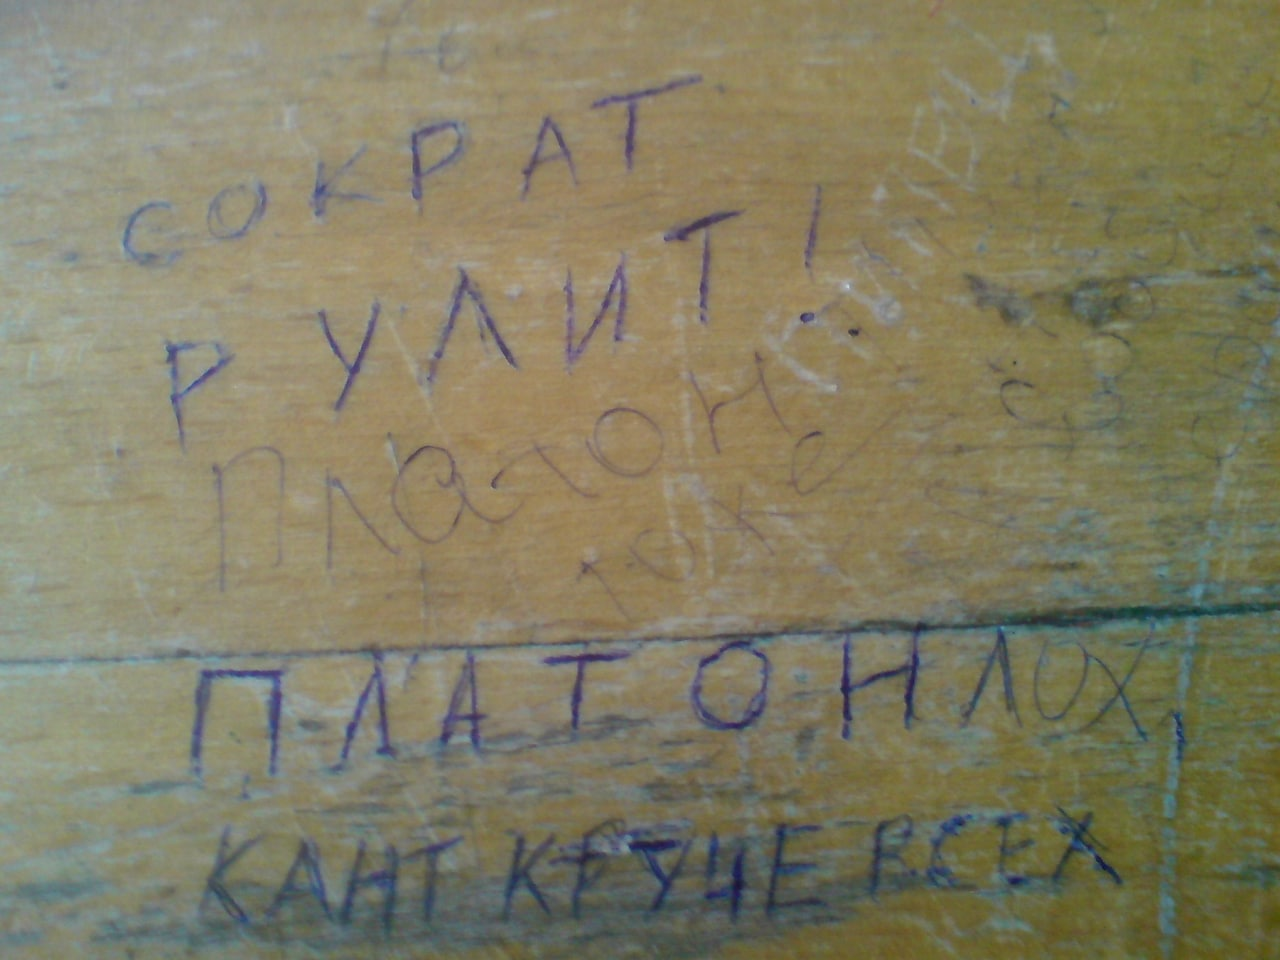 СОКРАТ
РУЛИТ!
Платон
тоже
ПЛАТОН ЛОХ,
КАНТ КРУЧЕ ВСЕХ